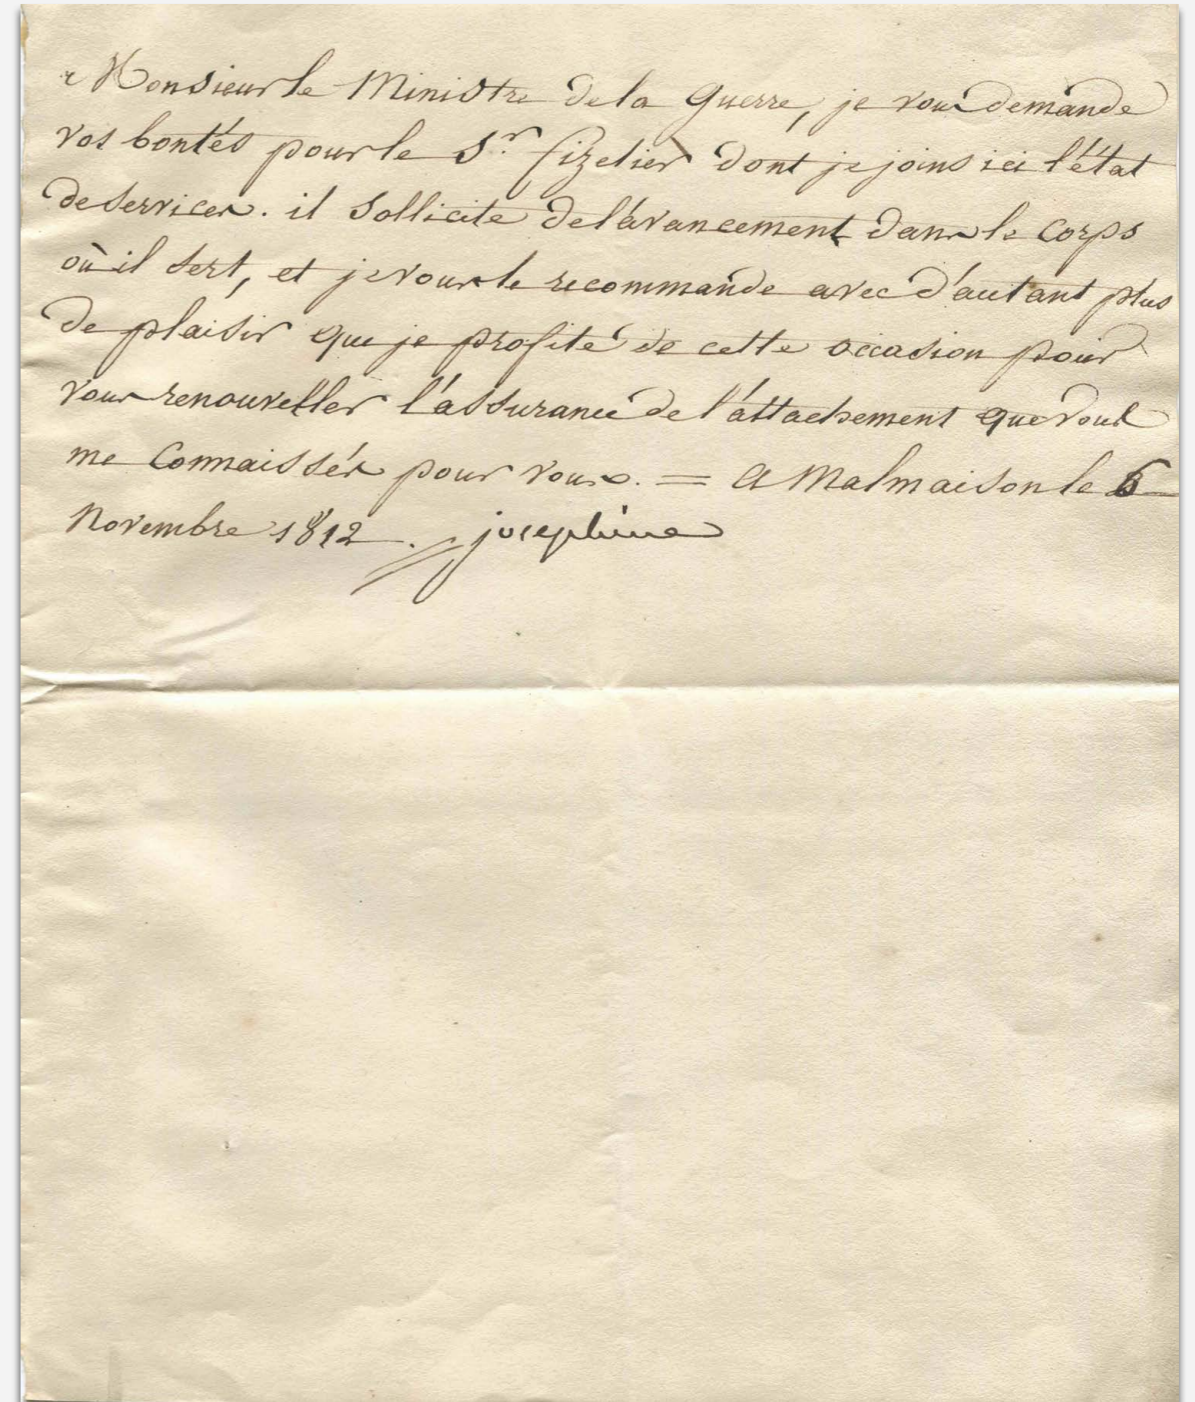 Monsieur le Ministre de la Guerre, je vous demande
vos bontés pour le Sr. fizelier dont je joins ici l'état
de services. il sollicite de l'avancement dans le corps
où il sert, et je vous le recommande avec d'autant plus
de plaisir que je profite de cette occasion pour
vous renouveller l'assurance de l'attachement que vous
me connaissés pour vous. = A Malmaison le 6
Novembre 1812. josephine